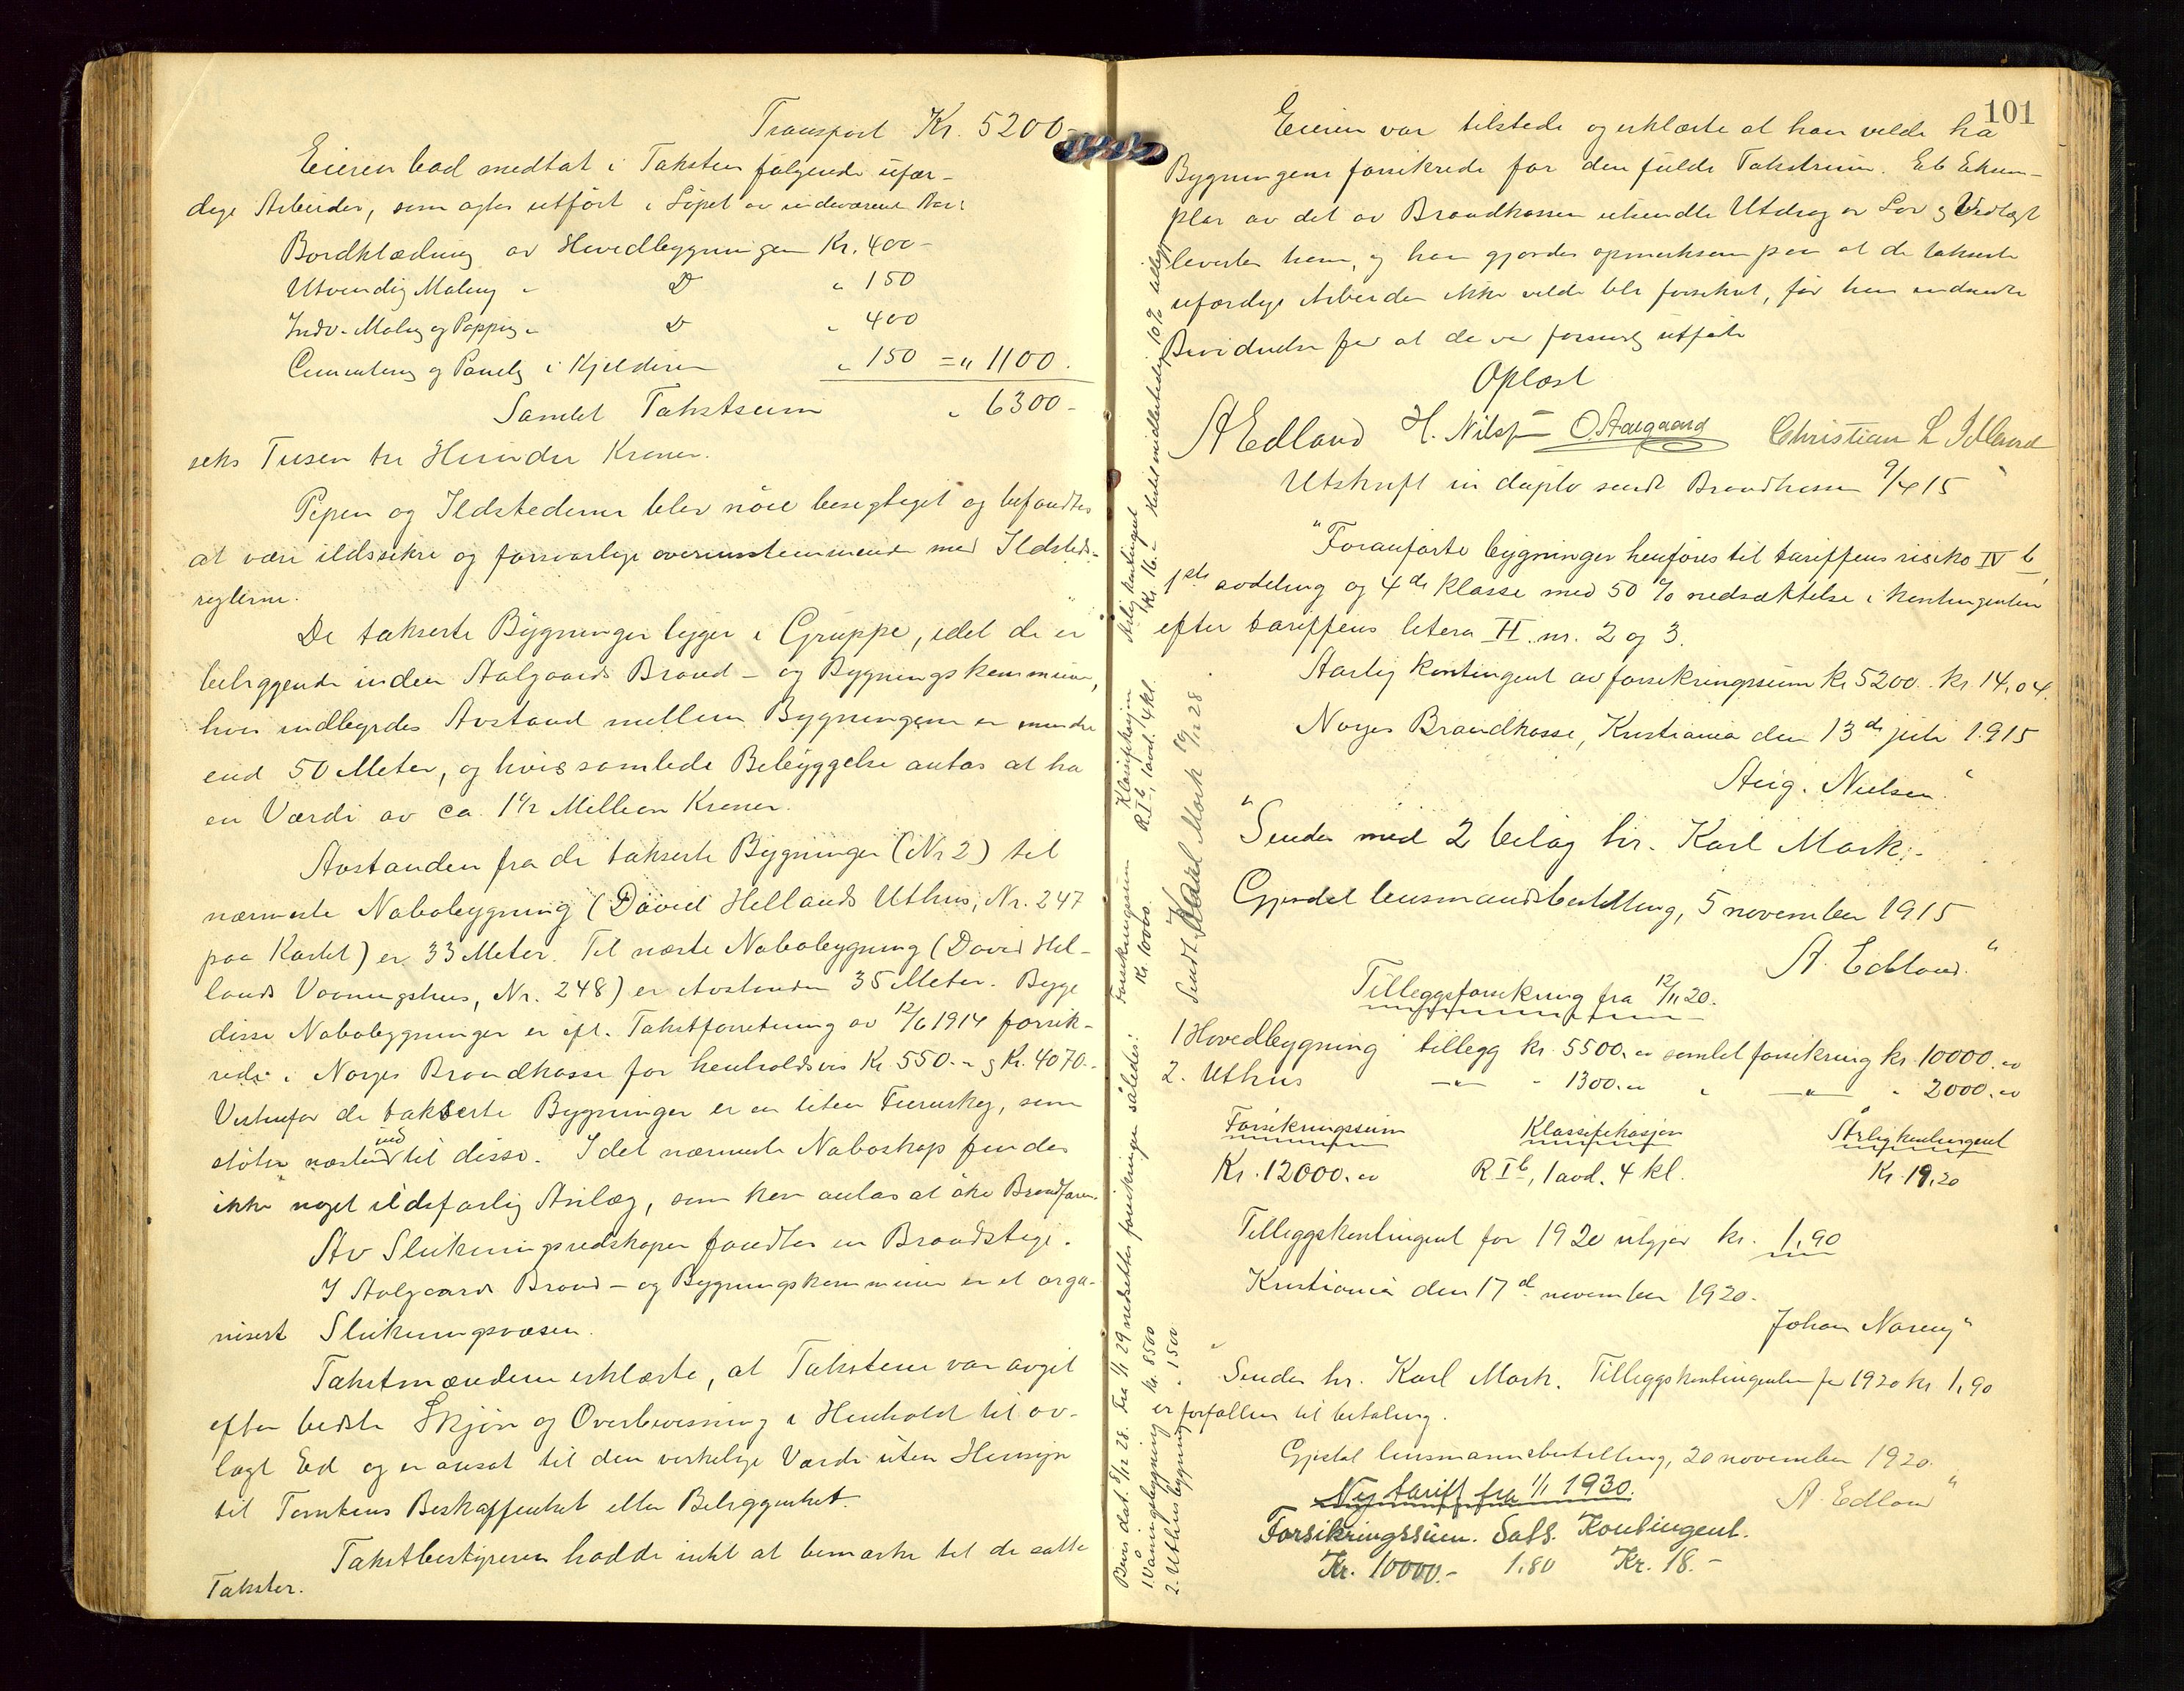 Transport Kr. 5200-
Eieren bad medtat i Taksten følgende ufær-
dige Arbeider, som agtes utført i Løpet av indeværende Aar:
Bordklædning av Hovedbygningen Kr. 400-
Utvendig Maling " D " 150
Indv. Maling og Papping " D " 400
Cementering og Paneling i Kjelderen " 150 = " 1100.
Samlet Takstsum " 6300-
seks Tusen tre Hundre Kroner.
Pipen og Ildstederne blev nöie besigtiget og befandtes
at være ildssikre og forsvarlige overensstemmende med Ildsteds-
reglerne.
De takserte Bygninger ligger i Gruppe, idet de er
beliggende inden Aalgaards Brand- og Bygningskommune,
hvor indbyrdes Avstand mellem Bygningerne er mindre
end 50 Meter, og hvis samlede Bebyggelse antas at ha
en Værdi av ca. 1 1/2 Million Kroner.
Avstanden fra de takserte Bygninger (Nr 2) til
nærmeste Nabobygning (David Hellands Uthus, Nr. 247
paa Kartet) er 33 Meter. Til næste Nabobygning (David Hel-
lands Vaaningshus, Nr. 248) er Avstanden 35 Meter. Begge
disse Nabobygninger er ifl. Takstforretning av 12/6 1914 forsik-
rede i Norges Brandkasse for henholdsvis Kr. 550.- og Kr. 4070.-
Vestenfor de takserte Bygninger er en liten Furuskog, som
støter næsten ind til disse. I det nærmeste Naboskap findes
ikke noget ildsfarlig Anlæg, som kan antas at öke Brandfaren.
Av Slukningsredskaper fandtes en Brandstige.
I Aalgaards Brand- og Bygningskommune er et orga-
nisert Slukningsvæsen.
Takstmændene erklærte, at Taksterne var avgit
efter bedste Skjön og Overbevisning i Henhold til av-
lagt Ed og er ansat til den virkelige Værdi uten Hensyn
til Tomtens Beskaffenhet eller Beliggenhet.
Takstbestyreren hadde intet at bemærke til de satte
Takster.
101
Eieren var tilstede og erklærte at han vilde ha
Bygningene forsikrede for den fulde Takstsum. Et Eksem-
plar av det av Brandkassen utsendte Utdrag av Lov og Vedtægt
levertes ham, og han gjordes opmerksom paa at de takserte
ufærdige Arbeider ikke vilde bli forsikret, før han indsendte
Bevidnelse for at de var forsvarlig utført
Oplæst
A Edland H. Nilsen O. Aalgaard Christian L Idland
Utskrift in duplo sendt Brandkassen 9/4 15
"Foranførte bygninger henføres til tariffens risiko IV b,
1ste avdeling og 4de klasse med 50 % nedsættelse i kontingenten
efter tariffens litera H. nr. 2 og 3.
Aarlig kontingent av forsikringssum kr 5200.- kr. 14,04.
Norges Brandkasse, Kristiania den 13de juli 1915
Aug. Nielsen."
"Sendes med 2 bilag hr. Karl Mork.-
Gjesdal lensmandsbestilling, 5 november 1915
A. Edland."
Tilleggsforsikring fra 12/11 20.
1 Hovedbygning tillegg kr. 5500.00 samlet forsikring kr. 10000.00
2. Uthus -"- " 1300.00 " -"- " 2000.00
Forsikringssum Klassifikasjon Årlig kontingent
Kr. 12000.00 R I b, 1 avd. 4 kl. Kr. 19,20
Tilleggskontingent for 1920 utgjør kr. 1,90
Kristiania den 17de november 1920.
Johan Noreng"
"Sendes hr. Karl Mork. Tilleggskontingenten for 1920 kr 1,90
er forfallen til betaling.
Gjestal lensmannsbestilling, 20 november 1920.
A. Edland"
Ny tariff fra 1/1 1930.
Forsikringssum. Sats. Kontingent.
Kr. 10000.- 1.80 Kr. 18.-
Bevis dat. 8/12 28. Fra 1/1 29 nedsettes forsikringen således: Forsikringssum Klassifikasjon Årlig kontingent
1. Våningsbygning kr. 8500 Kr. 10000. R I b, 1 avd. 4 kl. Kr. 16.-
2. Uthusbygning " 1500
Sendt Karl Mork 19/12 28.